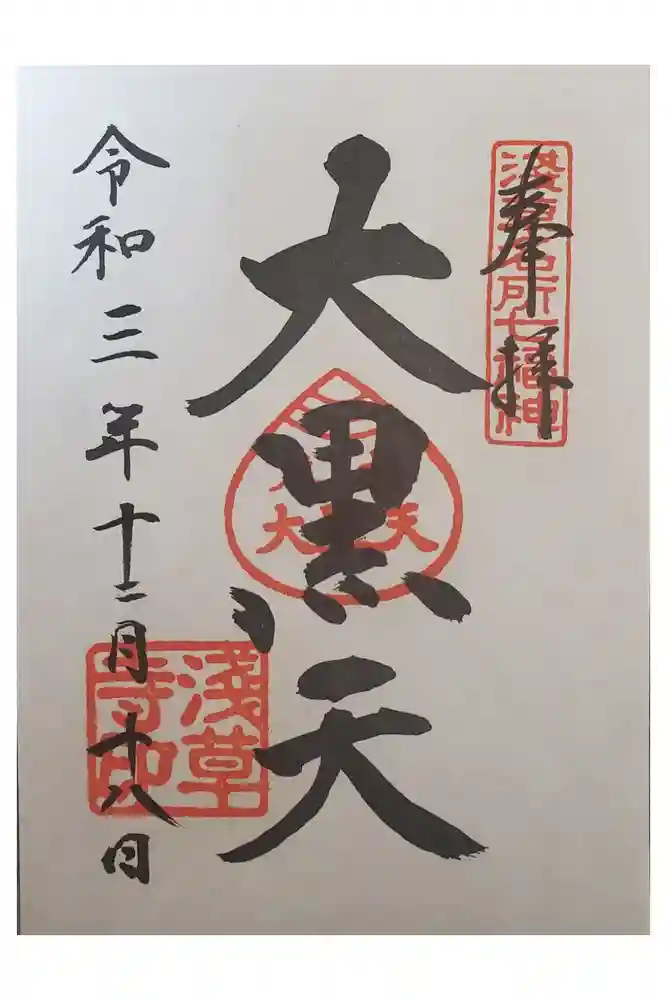 奉拝
淺草名所七福神
大黒天
大黒天
淺草
寺印
令和三年十二月十八日